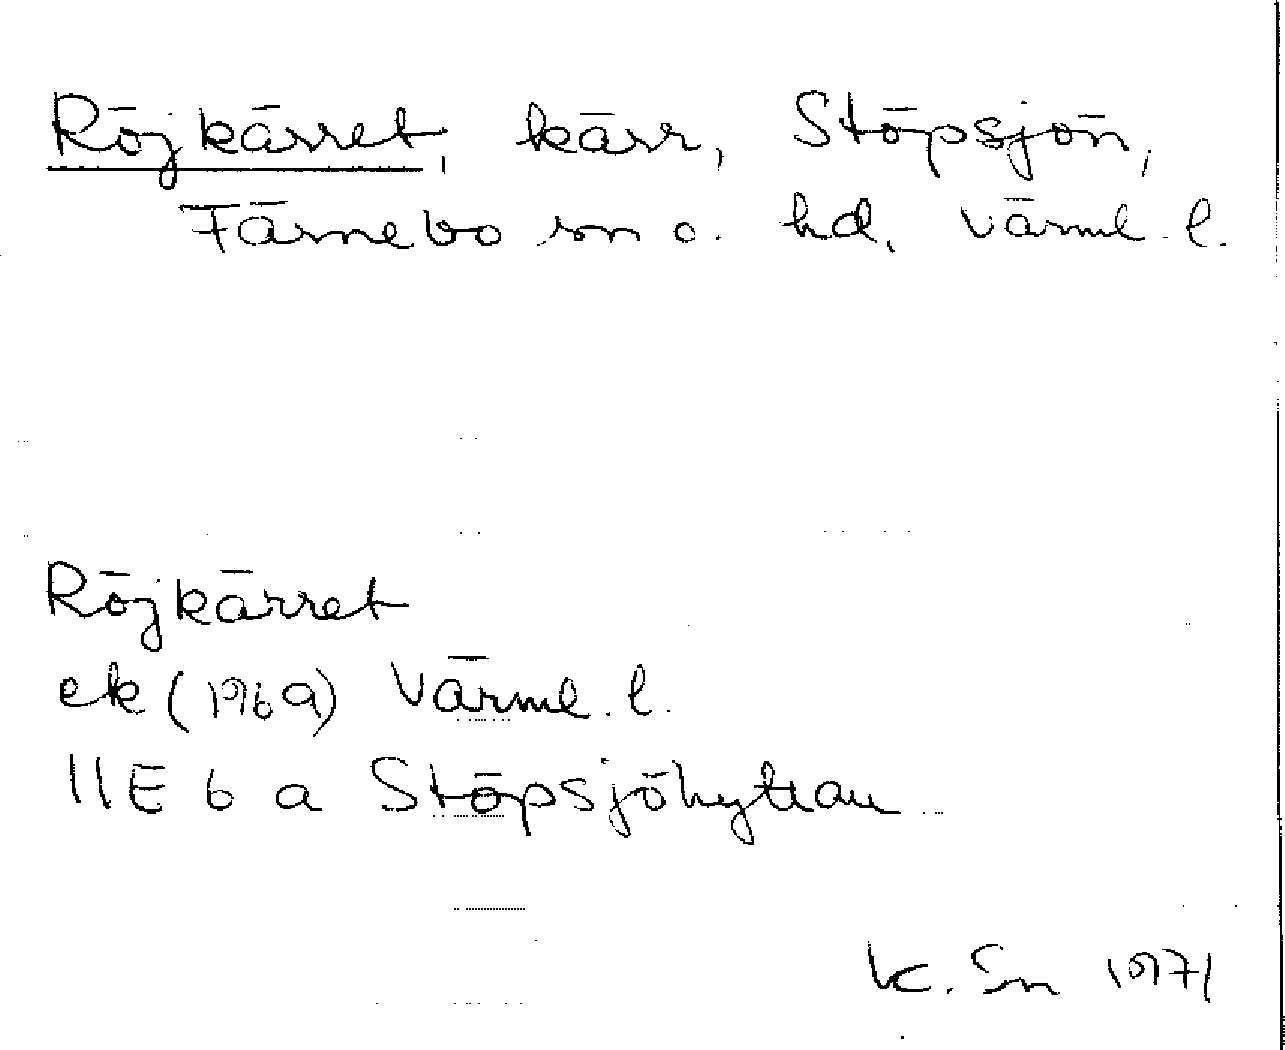 Röjkärret, kärr, Stöpsjön,
Färnebo sn o. hd, Värml. l.
Röjkärret
ek (1969) Värml. l.
11E 6 a Stöpsjöhyttan
K. Sn 1971